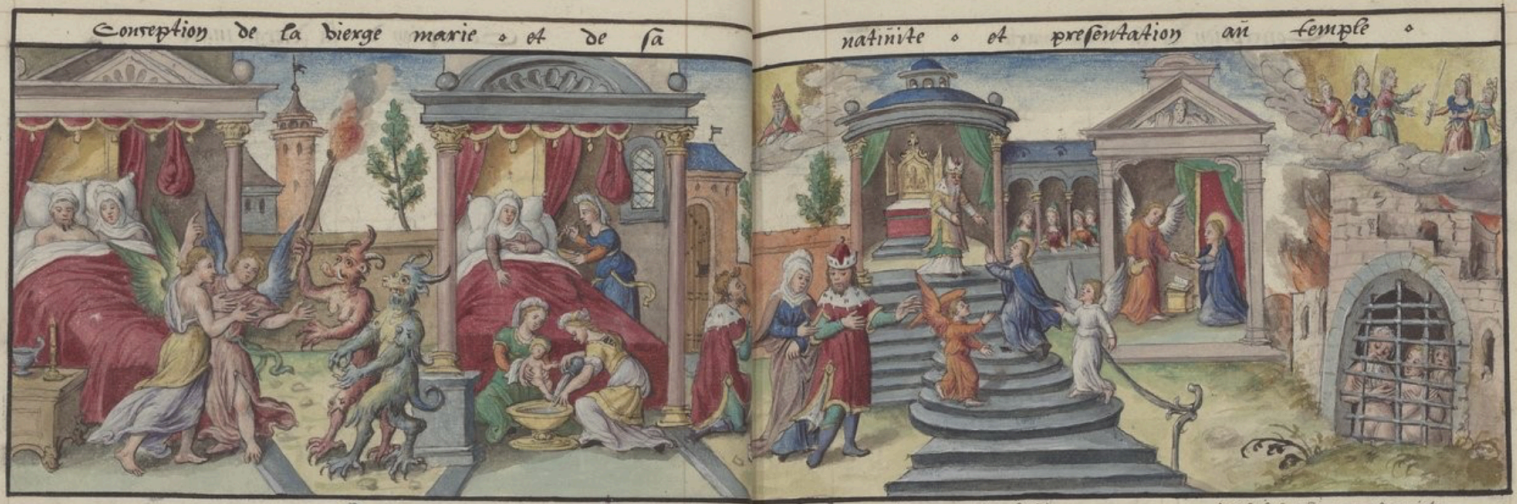 Conception de la vierge marie . et de sa nativite . et presentation au temple .